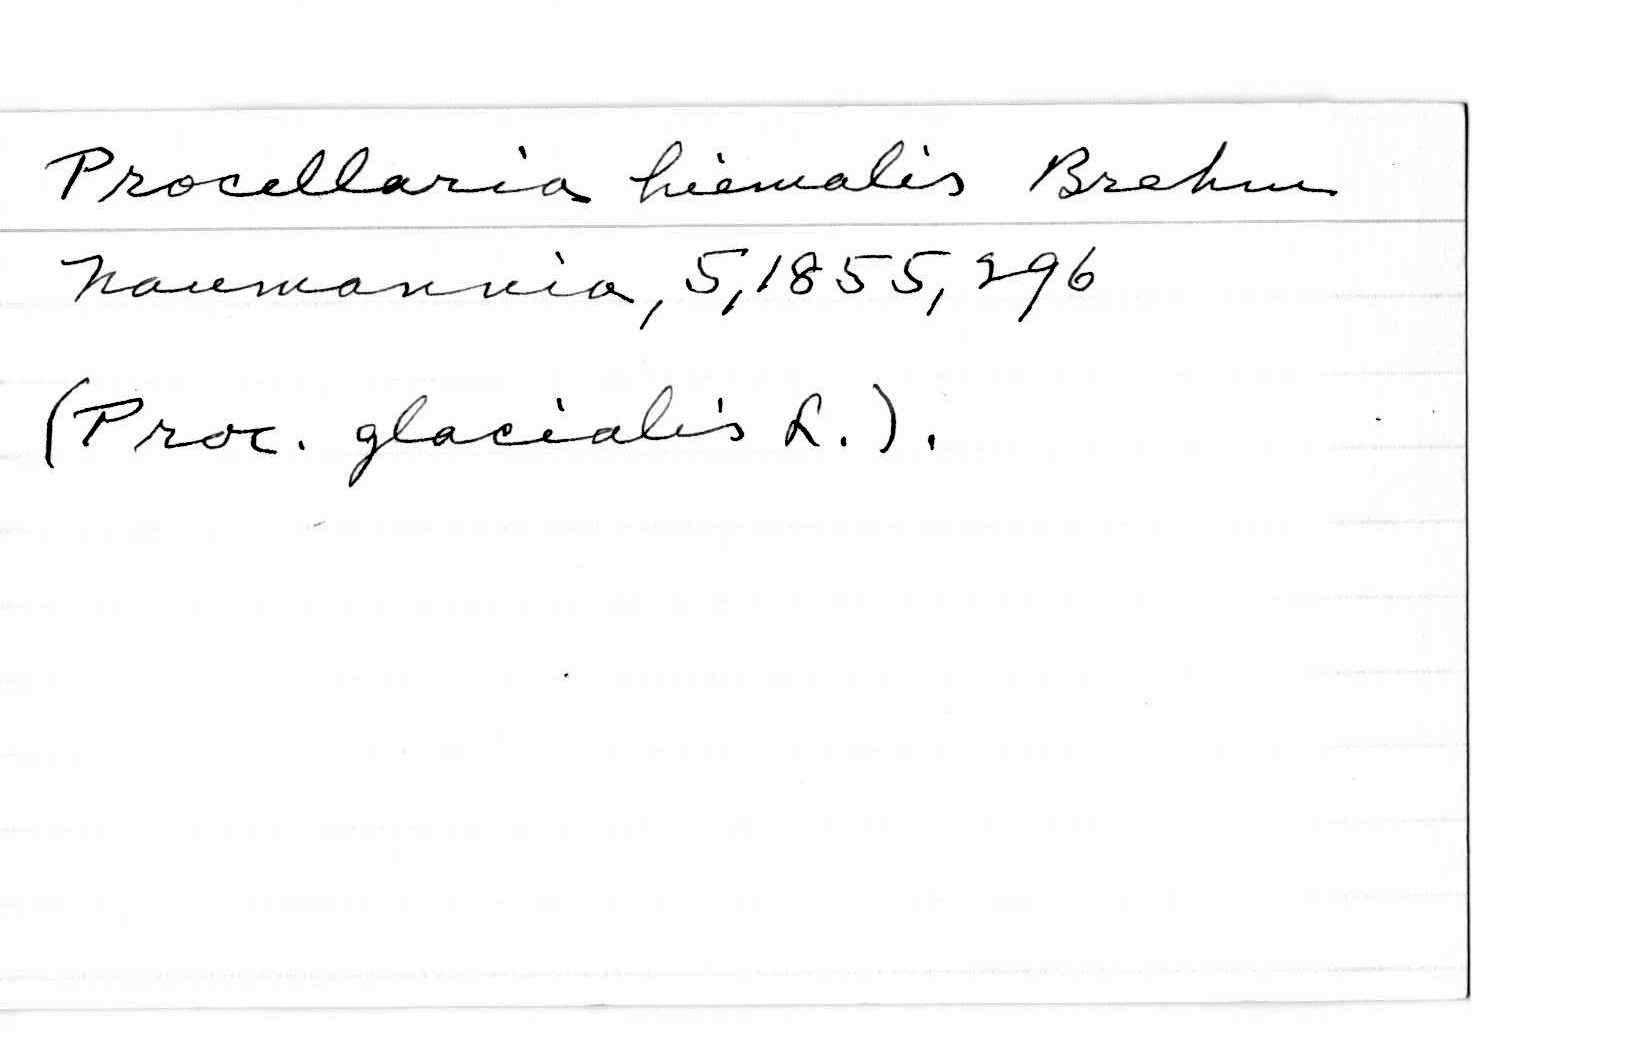 Procellaria hiemalis Brehm
Naumannia, 5, 1855, 296
(Proc. glacialis L.).